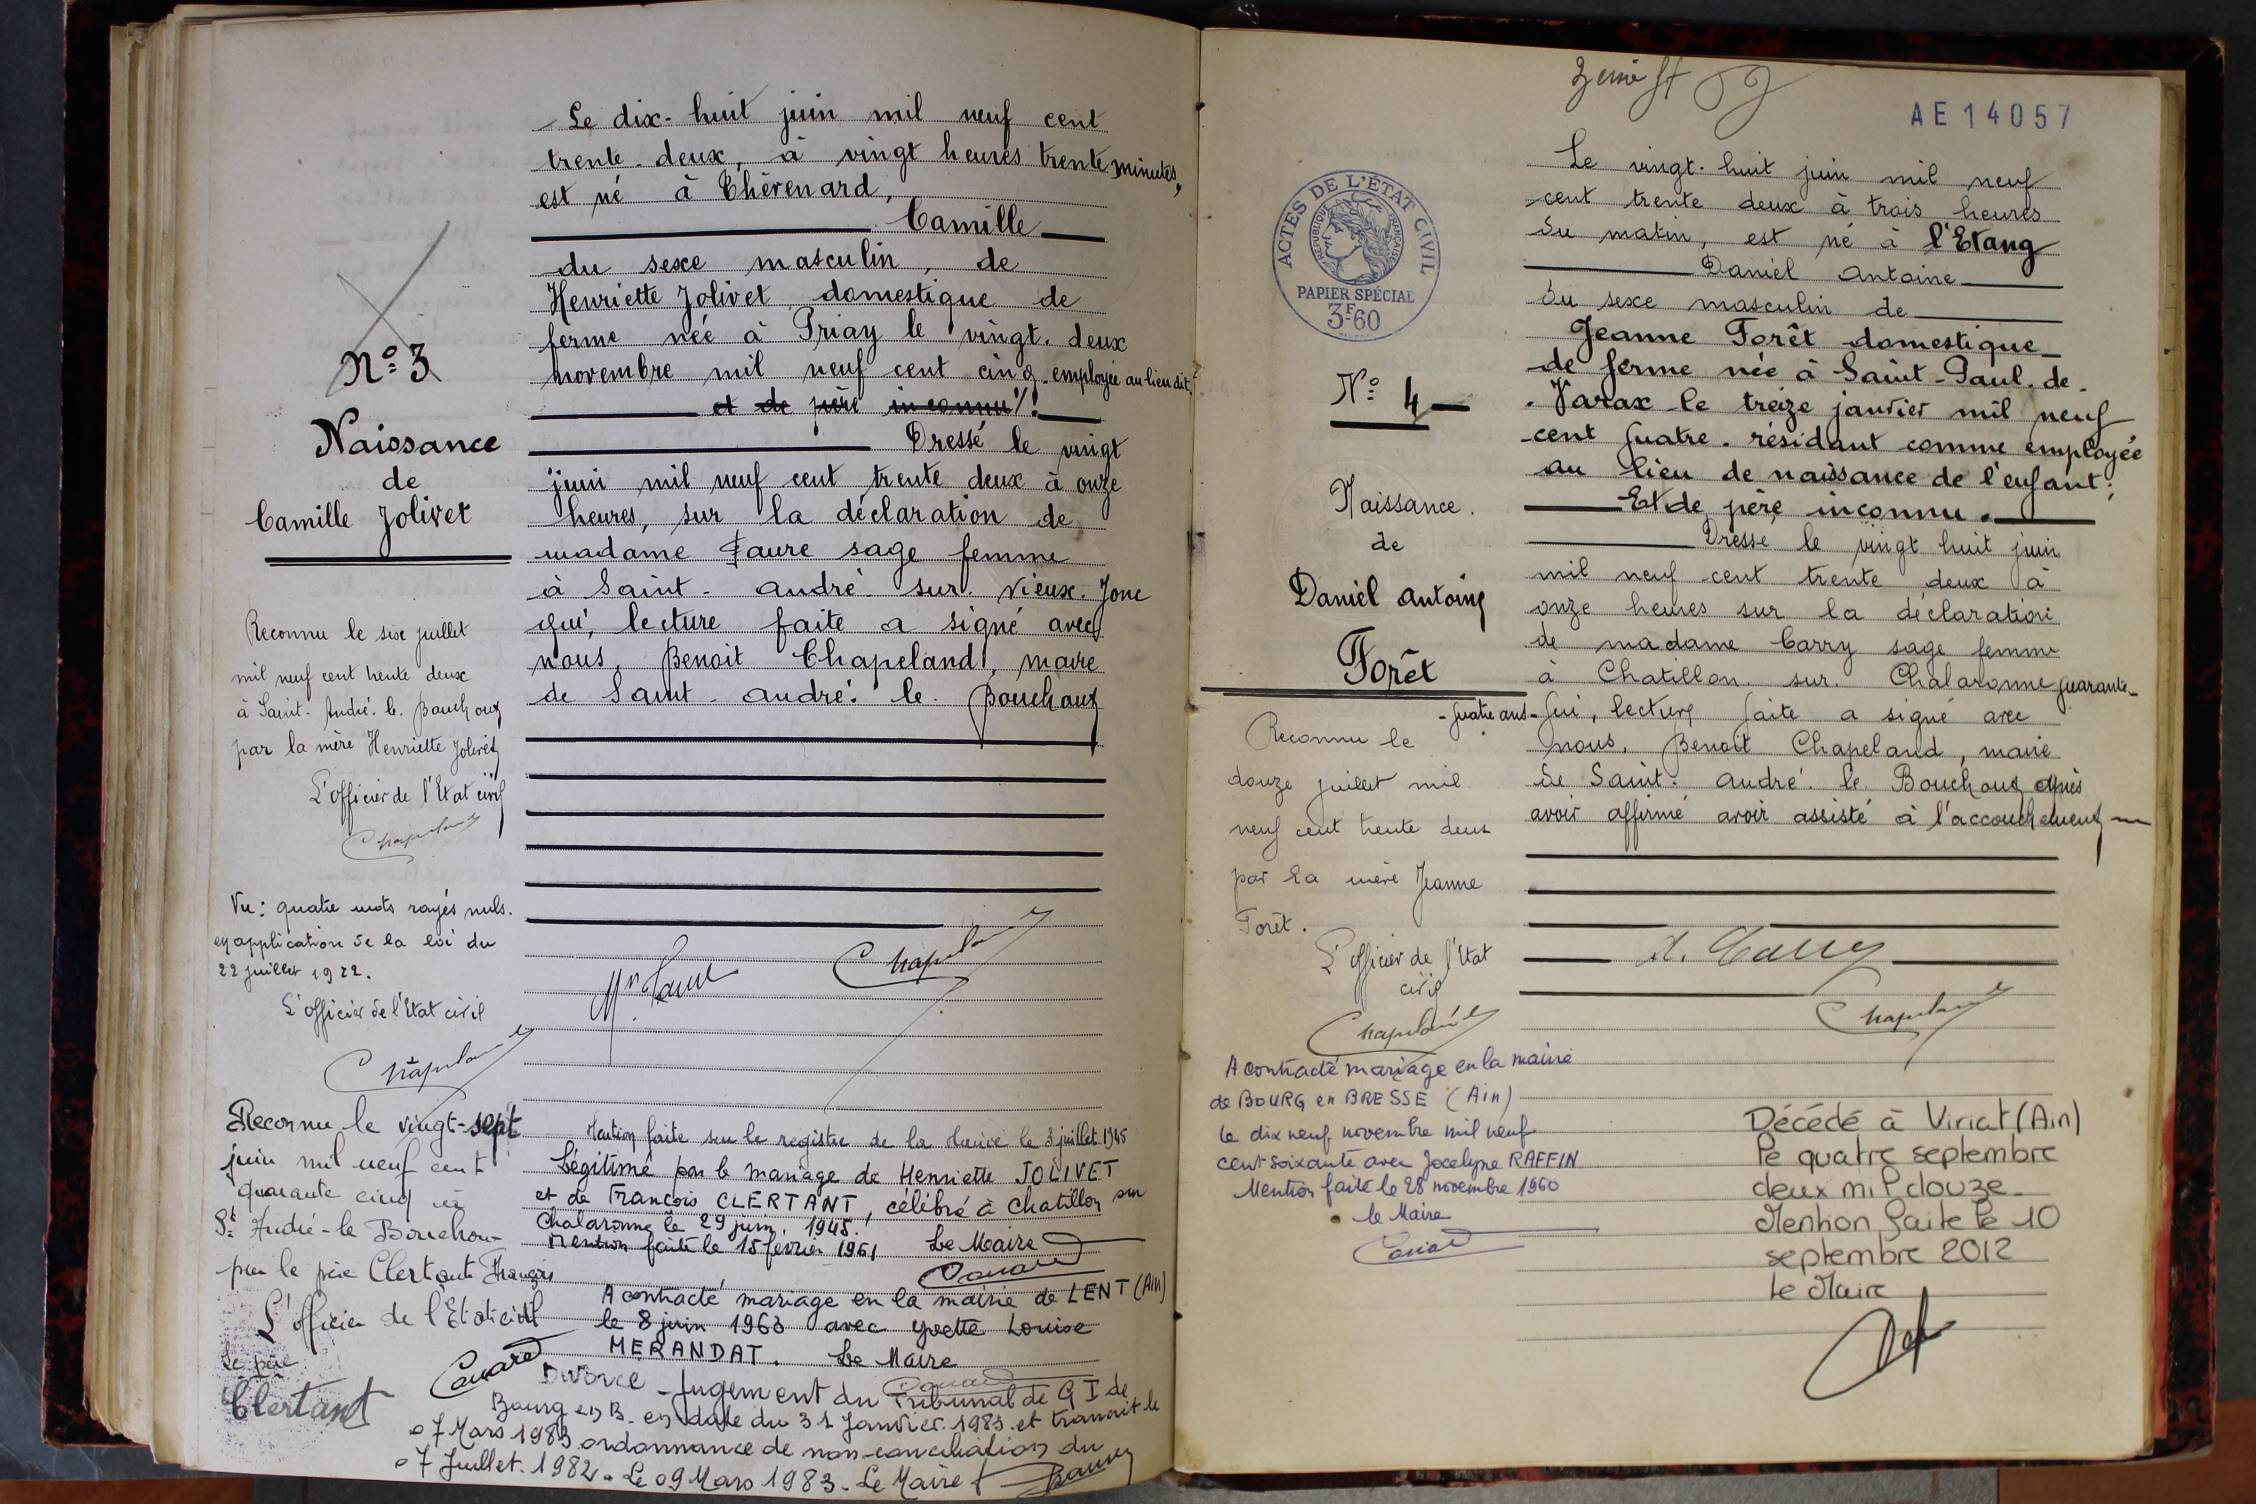 Le dix-huit juin mil neuf cent
trente-deux, à vingt heures trente minutes,
est né à Chèrenard,
Camille
du sexe masculin, de
Henriette Jolivet domestique de
ferme née à Priay le vingt-deux
novembre mil neuf cent cinq employée au lieu dit
et de père inconnu
Dressé le vingt
juin mil neuf cent trente deux à onze
heures, sur la déclaration de
madame Faure sage femme
à Saint-André-sur-Vieux-Jonc
qui, lecture faite a signé avec
nous, Benoit Chapeland, maire
de Saint-André-le-Bouchoux
Nº 3
Naissance
de
Camille Jolivet
Reconnu le six juillet
mil neuf cent trente deux
à Saint-André-le-Bouchoux
par la mère Henriette Jolivet
L'officier de l'Etat civil
Chapeland
Vu : quatre mots rayés nuls.
en application de la loi du
22 juillet 1922.
L'officier de l'Etat civil
Chapeland
Mme Faure
Chapeland
Reconnu le vingt-sept
juin mil neuf cent
quarante cinq à
St André-le-Bouchoux
par le père Clertant François
L'officier de l'Etat civil
Le père
Clertant
Mention faite sur le registre de la Mairie le 3 juillet 1945
Légitimé par le mariage de Henriette JOLIVET
et de François CLERTANT, célébré à Chatillon sur
Chalaronne le 29 juin 1945.
Mention faite le 15 février 1961 Le Maire
A contracté mariage en la mairie de LENT (Ain)
le 8 juin 1963 avec Yvette Louise
MERANDAT. Le Maire
Divorce - Jugement du Tribunal de G I de
Bourg en B. en date du 31 Janvier 1983 et transcrit le
07 Mars 1983 ordonnance de non-conciliation du
07 Juillet 1982. Le 09 Mars 1983. Le Maire
AE 14057
ACTES DE L'ÉTAT CIVIL
RÉPUBLIQUE FRANÇAISE
PAPIER SPÉCIAL
3F60
Le vingt-huit juin mil neuf
cent trente deux à trois heures
du matin, est né à l'Etang
Daniel Antoine
du sexe masculin de
Jeanne Forêt domestique
de ferme née à Saint-Paul-de-
Varax le treize janvier mil neuf
cent quatre. résidant comme employée
au lieu de naissance de l'enfant;
Et de père inconnu.
Dressé le vingt huit juin
mil neuf cent trente deux à
onze heures sur la déclaration
de madame Carry sage femme
à Chatillon-sur-Chalaronne quarante-
quatre ans qui, lecture faite a signé avec
nous, Benoit Chapeland, maire
de Saint-André-le-Bouchoux après
avoir affirmé avoir assisté à l'accouchement
Nº 4
Naissance.
de
Daniel Antoine
Forêt
Reconnu le
douze juillet mil
neuf cent trente deux
par la mère Jeanne
Forêt.
L'officier de l'Etat
civil
Chapeland
Carry
Chapeland
A contracté mariage en la mairie
de BOURG en BRESSE (Ain)
le dix neuf novembre mil neuf
cent soixante avec Jocelyne RAFFIN
Mention faite le 28 novembre 1960
le Maire
Décédé à Viriat (Ain)
le quatre septembre
deux mil douze
Mention faite le 10
septembre 2012
le Maire